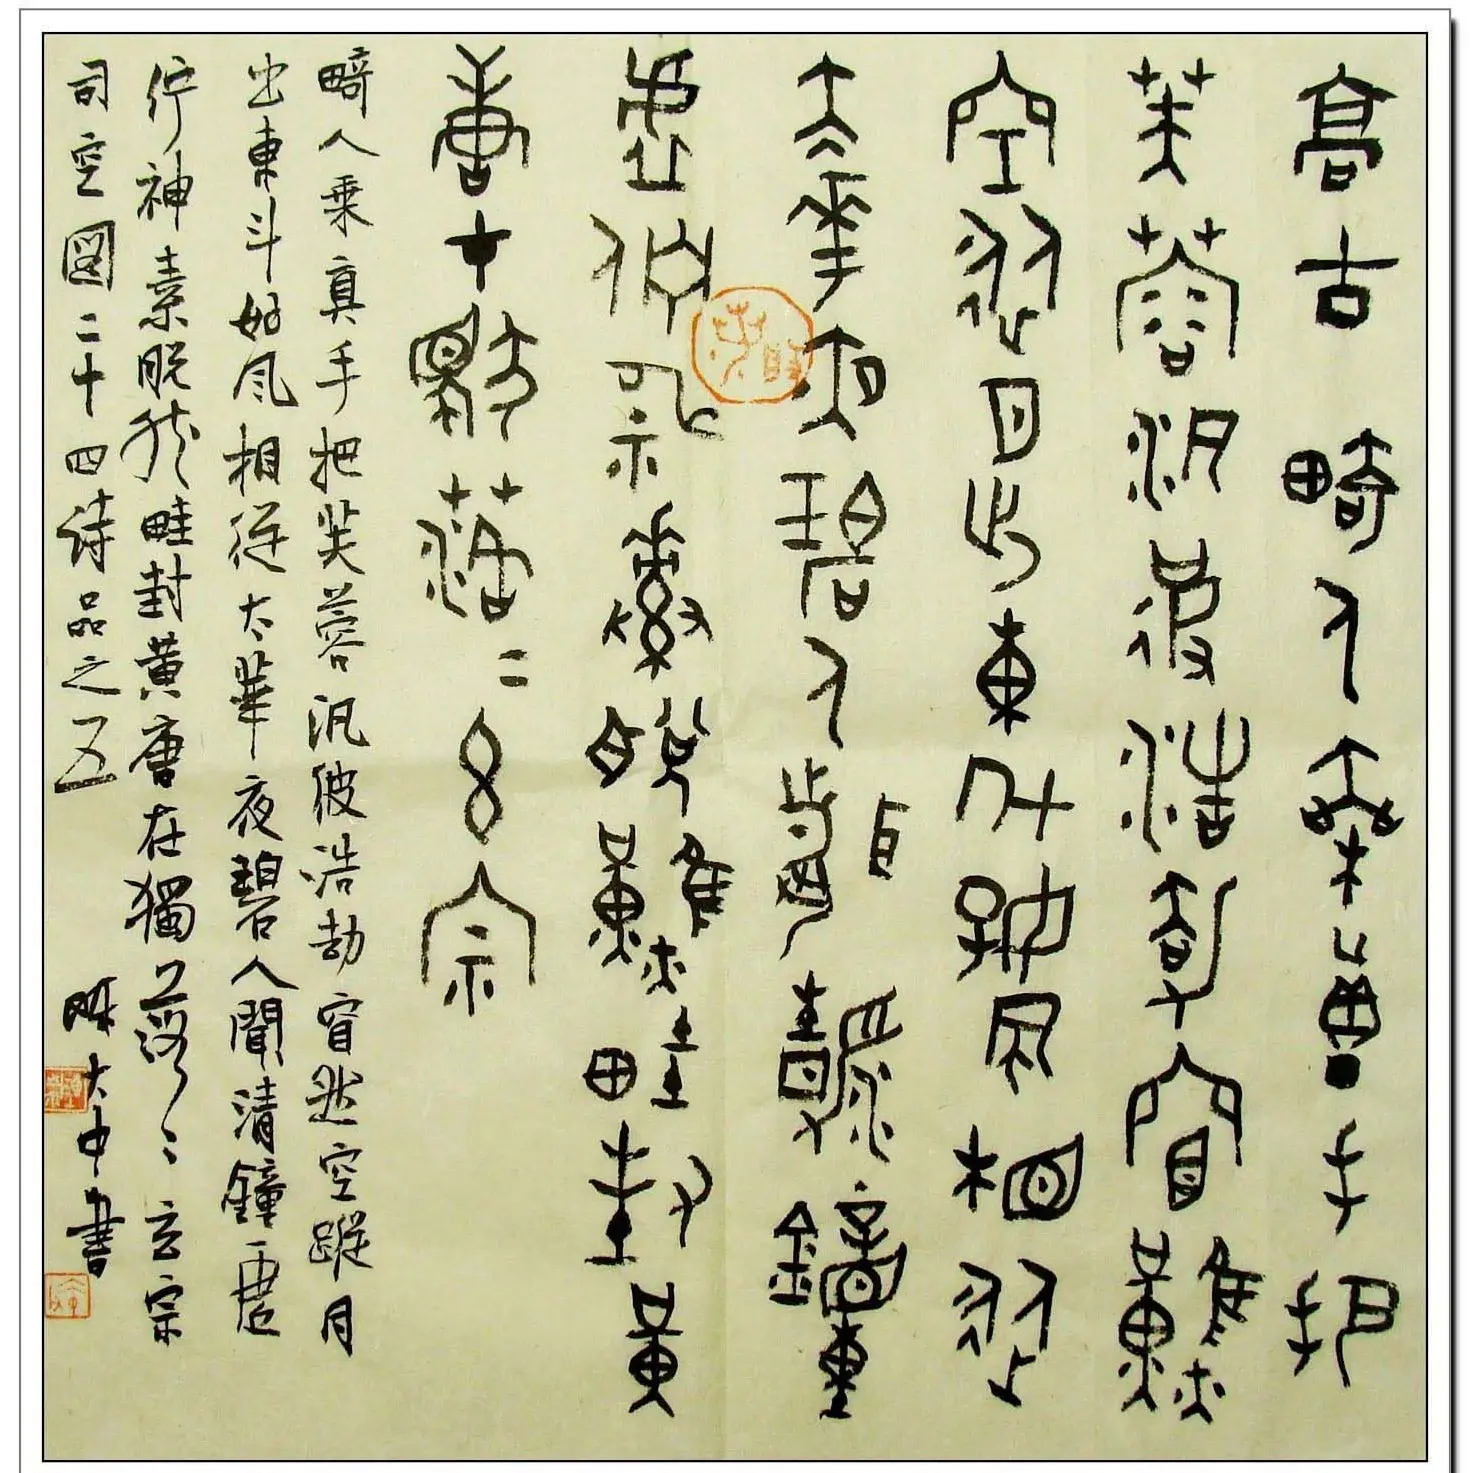 高古 畸人乘真手把
芙蓉汎彼浩劫窅然
空從月出東斗好風相從
太華夜碧人聞清鐘
虛佇神素脫然畦封黃
唐在獨落〻玄宗
畸人乘真手把芙蓉汎彼浩劫窅然空蹤月
出東斗好風相從太華夜碧人聞清鐘虛
佇神素脫然畦封黃唐在獨落〻玄宗
司空圖二十四詩品之五 陳大中書